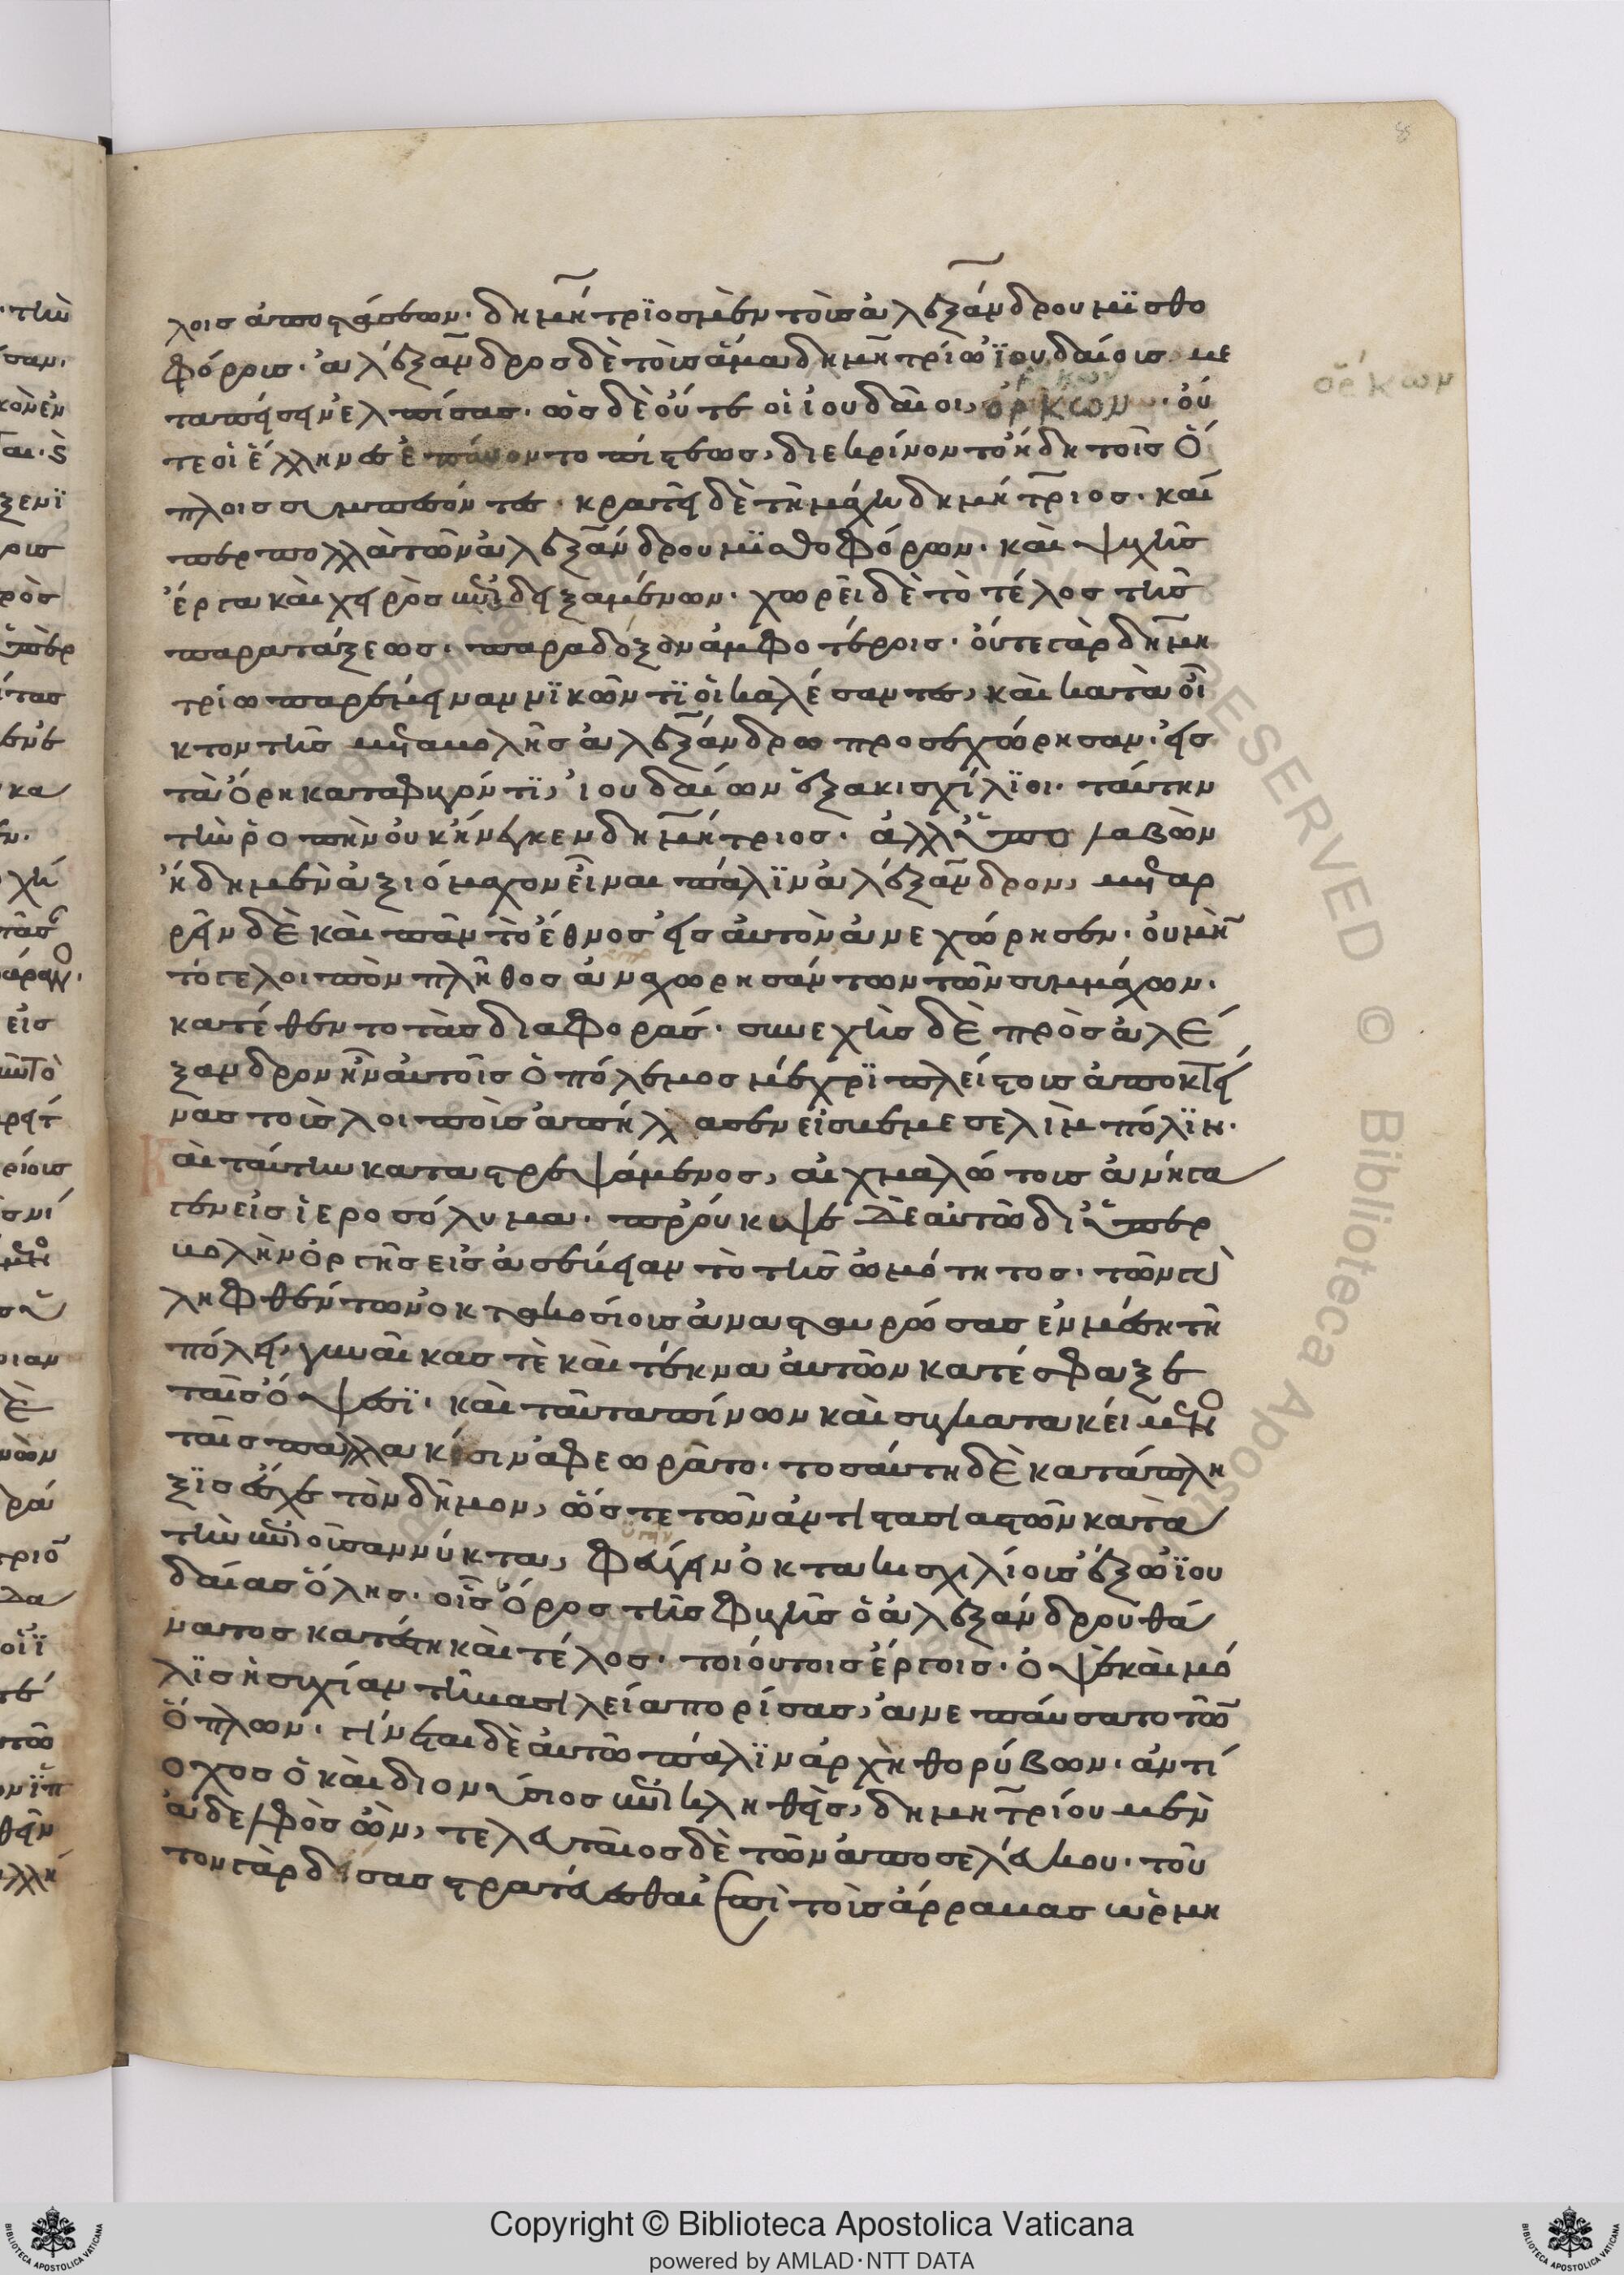 λοις ἀποστάσεων· δημήτριος μὲν τοὺς ἀλεξάνδρου μισθο
φόροις· ἀλέξανδρος δὲ τοὺς ἅμα δημητρίω ἰουδαίοις με
ταπείσειν ἐλπίσας· ὡς δὲ οὔτε οἱ ἰουδαῖοι, ὅρκων· οὔ
τε οἱ ἕλληνες ἐπαύοντο πίστεως, διεκρίνοντο ἤδη τοῖς ὅ
πλοις συμπεσόντες· κρατεῖ δὲ τῆ μάχη δημήτριος· καί
περ πολλὰ τῶν ἀλεξάνδρου μισθοφόρων· καὶ ψυχῆς
ἔργα καὶ χειρὸς ἐπιδειξαμένων· χωρεῖ δὲ τὸ τέλος τῆς
παρατάξεως· παράδοξον ἀμφοτέροις· οὔτε γὰρ δημη
τρίω παρέμειναν νικῶντι οἱ καλέσαντες, καὶ κατὰ οἶ
κτον τῆς μεταβολῆς ἀλεξάνδρω προσεχώρησαν· εἰς
τὰ ὄρη καταφυγόντι, ἰουδαίων ἑξακισχίλιοι· ταύτην
τὴν ῥοπὴν οὐκ ἤνεγκεν δημήτριος· ἀλλ' ὑπολαβὼν
ἤδη μὲν ἀξιόμαχον εἶναι πάλιν ἀλέξανδρον, μεταρ
ρεῖν δὲ καὶ πᾶν τὸ ἔθνος εἰς αὐτὸν ἀνεχώρησεν· οὐ μὴν
τό γε λοιπὸν πλῆθος ἀναχωρησάντων τῶν συμμάχων·
κατέθεντο τὰς διαφοράς· συνεχὴς δὲ πρὸς ἀλέ
ξανδρον ἦν αὐτοῖς ὁ πόλεμος μέχρι πλείστοις ἀποκτεί
νας τοὺς λοιποὺς ἀπήλασεν εἰς βεμεσελὶμ πόλιν·
Καὶ ταύτην καταστρεψάμενος, αἰχμαλώτοις ἀνήγα
γεν εἰς ἱεροσόλυμα· προύκυψε δὲ αὐτῶ δι' ὑπερ
βολὴν ὀργῆς εἰς ἀσέβειαν τὸ τῆς ὠμότητος· τῶν γὰρ
ληφθέντων ὀκτακοσίοις ἀνασταυρώσας ἐν μέση τῆ
πόλει, γυναῖκας τὲ καὶ τέκνα αὐτῶν κατέσφαξε
ταῖς ὄψεσι· καὶ ταῦτα πίνων καὶ συγκατακείμενος
ταῖς παλλακίσιν ἀφεωρᾶτο· τοσαύτη δὲ κατάπλη
ξις ἔσχε τὸν δῆμον, ὥστε τῶν ἀντιστασιαστῶν κατὰ
τὴν ἐπιοῦσαν νύκτα, φυγεῖν ὀκτακισχιλίοις ἔξω ἰου
δαίας ὅλης· οἷς ὅρος τῆς φυγῆς ὁ ἀλεξάνδρου θά
νατος κατέστη καὶ τέλος· τοιούτοις ἔργοις· ὀψὲ καὶ μό
λις ἡσυχίαν τῆ βασιλεία πορίσας, ἀνεπαύσατο τῶν
ὅπλων· γίνεται δὲ αὐτῶ πάλιν ἀρχὴ θορύβων· ἀντί
οχος ὁ καὶ διονύσιος ἐπικληθεὶς, δημητρίου μὲν
ἀδελφὸς ὢν, τελευταῖος δὲ τῶν ἀπὸ σελεύκου· τοῦ
τον γὰρ δείσας στρατεύεσθαι ἐπὶ τοὺς ἄρραβας ὡρμη
ὅρκων